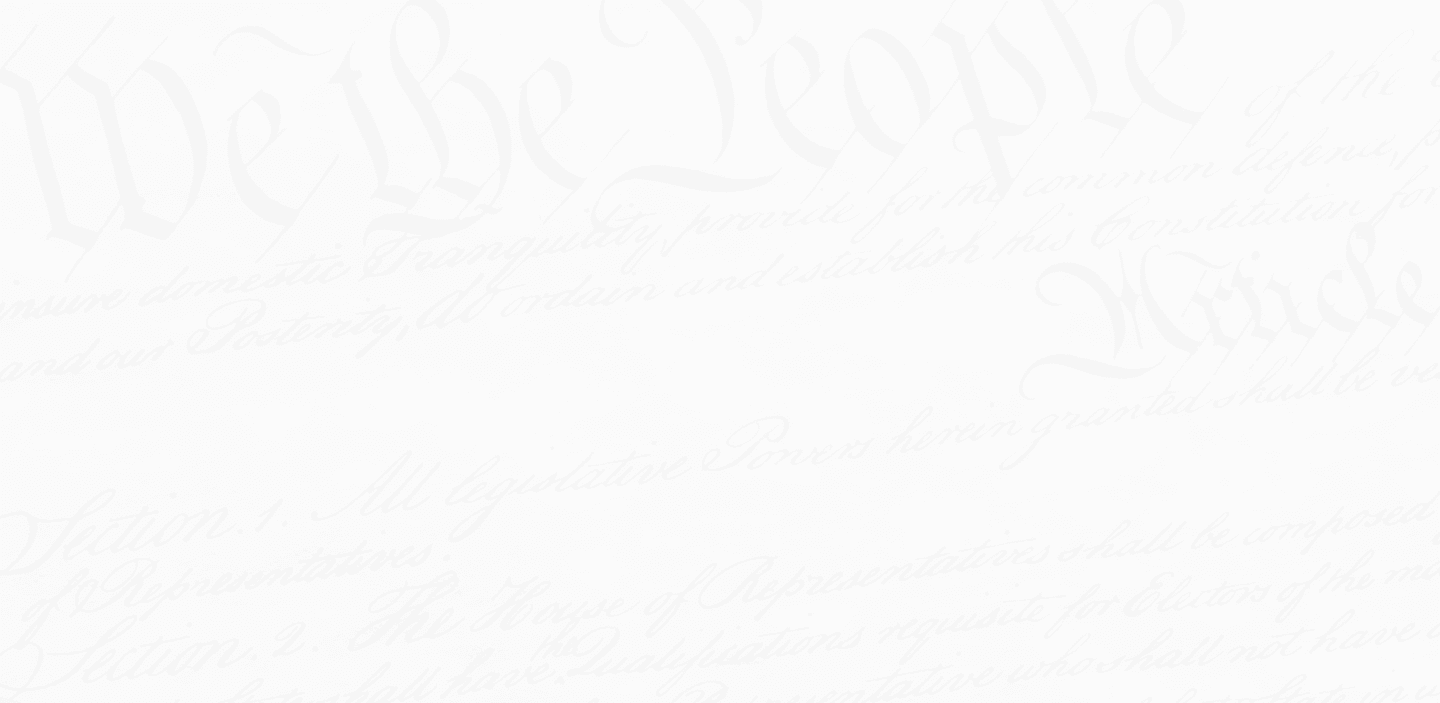 We the People of the
insure domestic Tranquility, provide for the common defence,
and our Posterity, do ordain and establish this Constitution for
Article
Section. 1. All legislative Powers herein granted shall be
of Representatives.
Section. 2. The House of Representatives shall be composed
shall have the Qualifications requisite for Electors of the
Representative who shall not have
State in